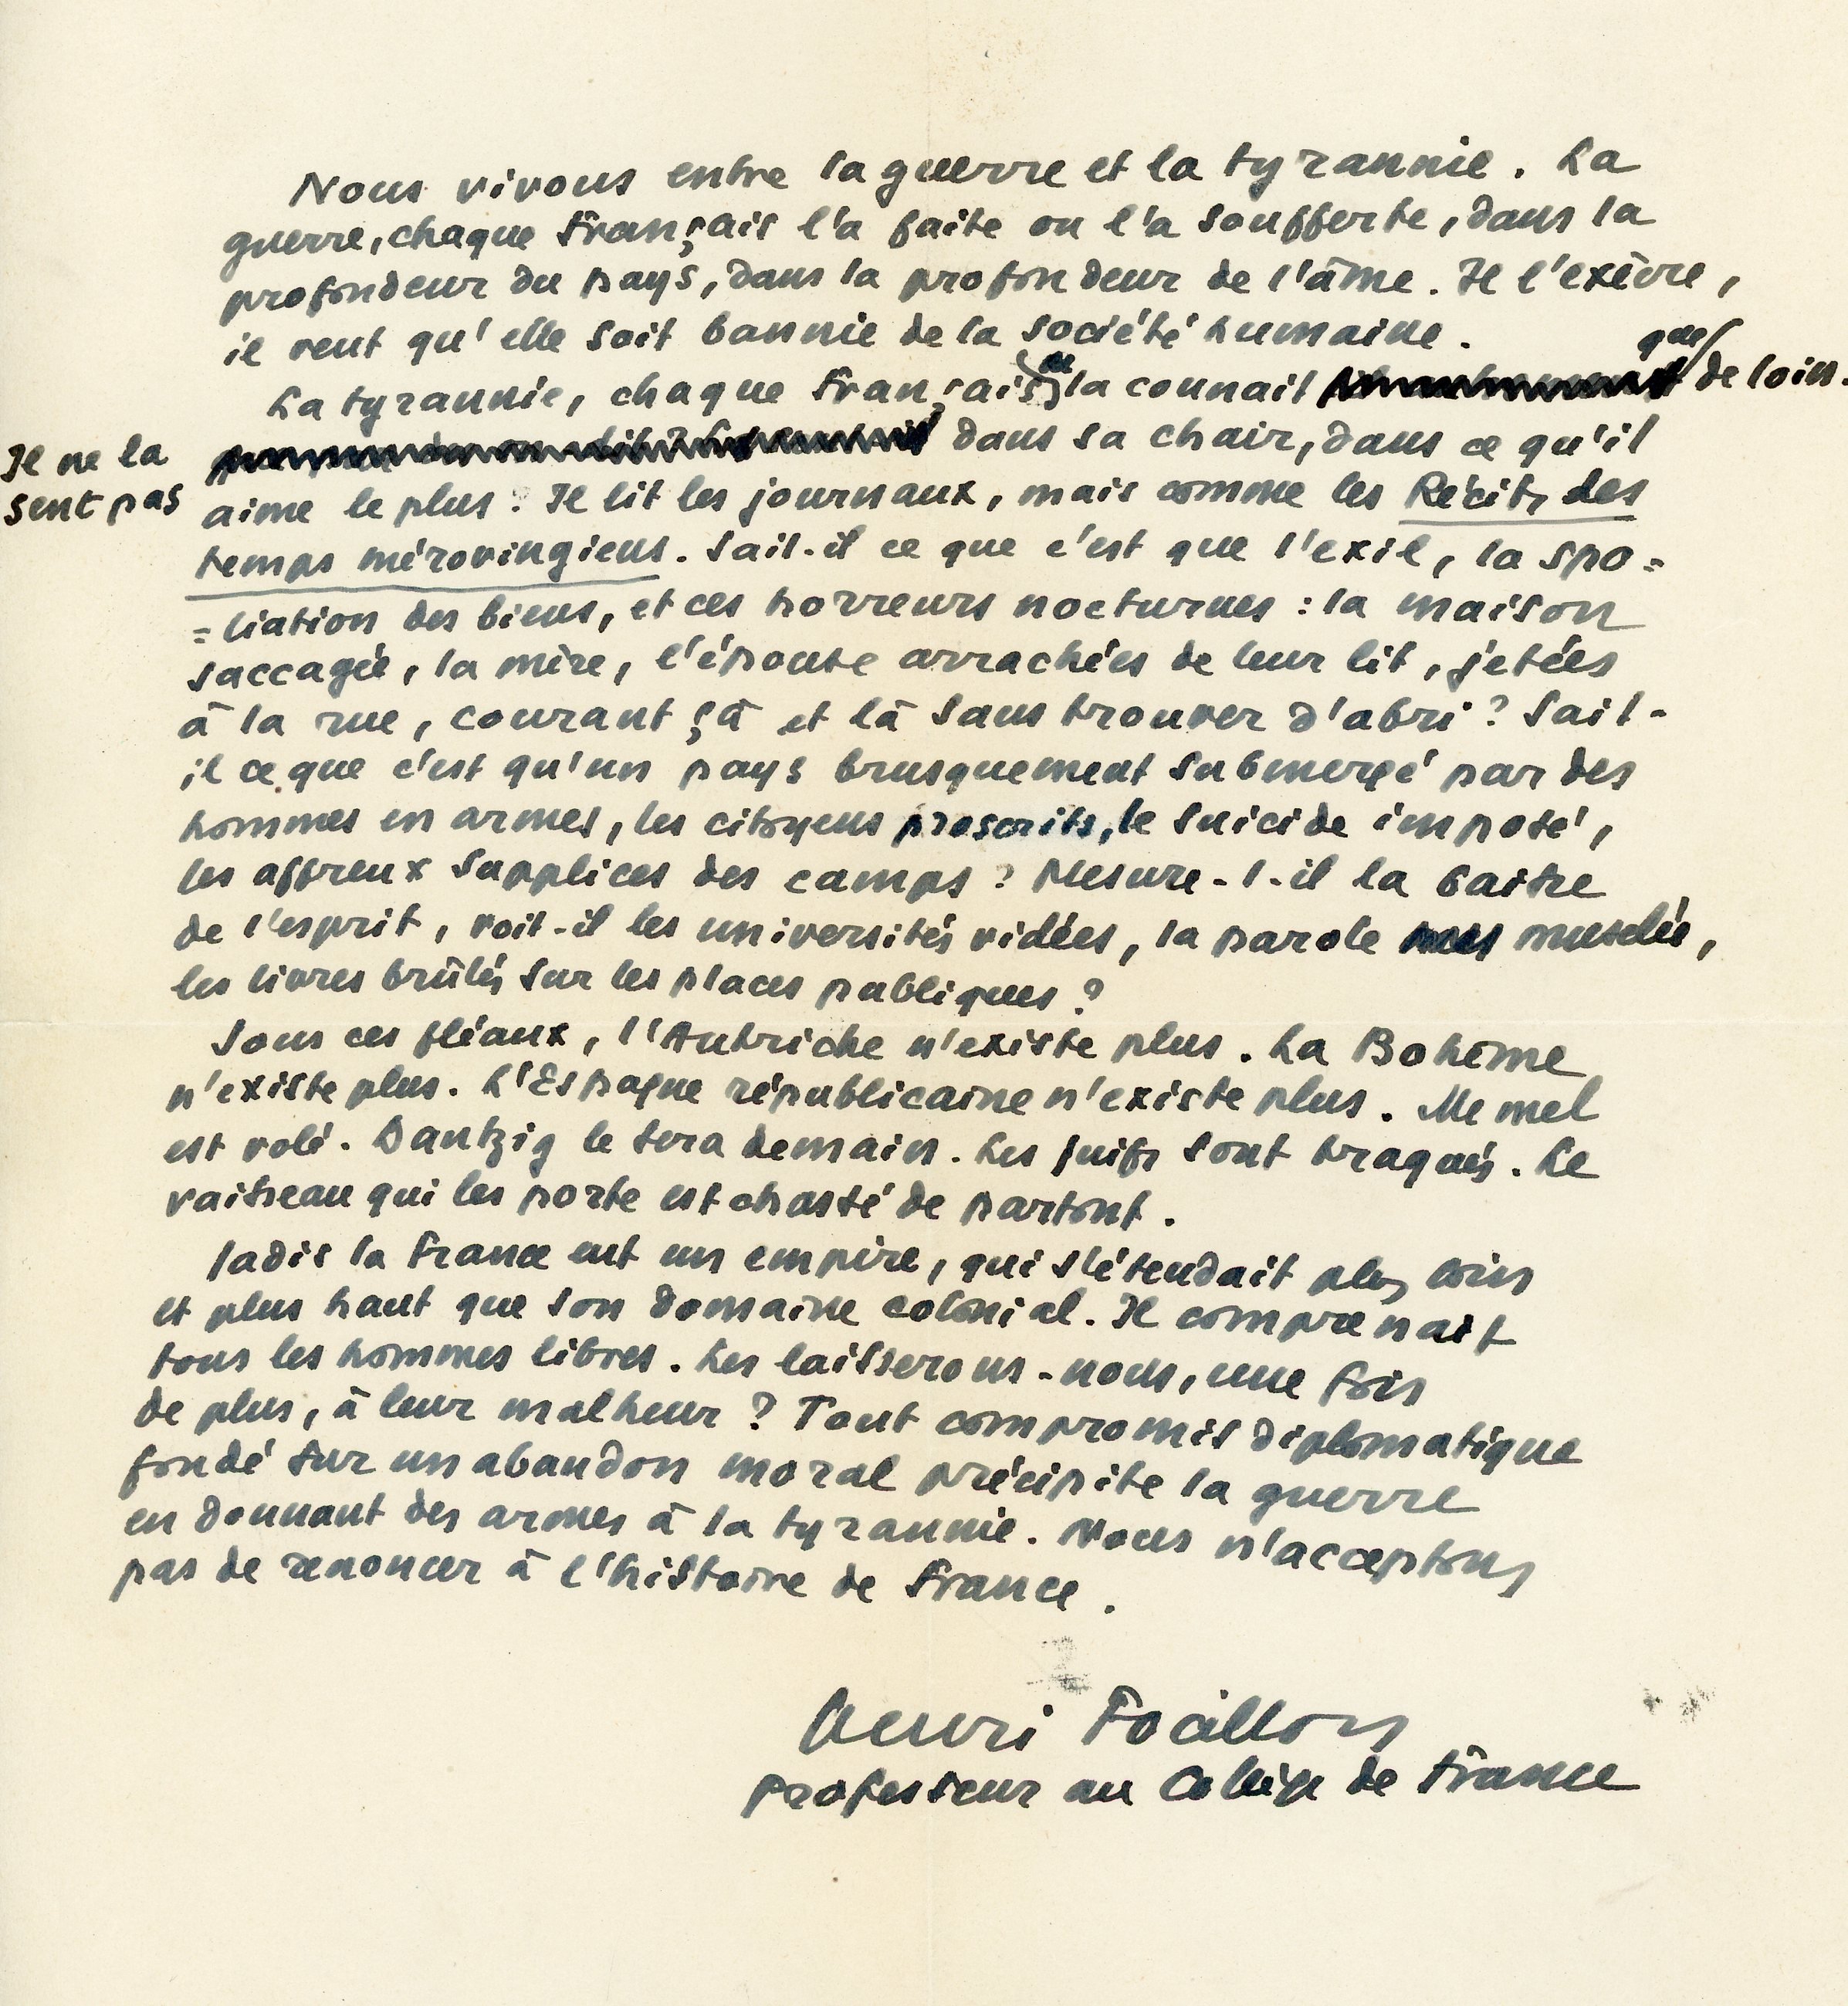 Nous vivons entre la guerre et la tyrannie. La
guerre, chaque Français l'a faite ou l'a soufferte, dans la
profondeur du pays, dans la profondeur de l'âme. Il l'exècre,
il veut qu'elle soit bannie de la société humaine.
La tyrannie, chaque Français ne la connait que de loin.
Il ne la
sent pas
dans sa chair, dans ce qu'il
aime le plus. Il lit les journaux, mais comme les Récits des
temps mérovingiens. Sait-il ce que c'est que l'exil, la spo=
=liation des biens, et ces horreurs nocturnes : la maison
saccagée, la mère, l'épouse arrachées de leur lit, jetées
à la rue, courant çà et là sans trouver d'abri ? Sait-
il ce que c'est qu'un pays brusquement submergé par des
hommes en armes, les citoyens proscrits, le suicide imposé,
les affreux supplices des camps ? Mesure-t-il la baisse
de l'esprit, voit-il les universités vidées, la parole muselée,
les livres brûlés sur les places publiques ?
Sous ces fléaux, l'Autriche n'existe plus. La Bohême
n'existe plus. L'Espagne républicaine n'existe plus. Memel
est volé. Dantzig le sera demain. Les Juifs sont traqués. Le
vaisseau qui les porte est chassé de partout.
Jadis la France eut un empire, qui s'étendait plus loin
et plus haut que son domaine colonial. Il comprenait
tous les hommes libres. Les laisserons-nous, une fois
de plus, à leur malheur ? Tout compromis diplomatique
fondé sur un abandon moral précipite la guerre
en donnant des armes à la tyrannie. Nous n'acceptons
pas de renoncer à l'histoire de France.
Henri Focillon
professeur au Collège de France